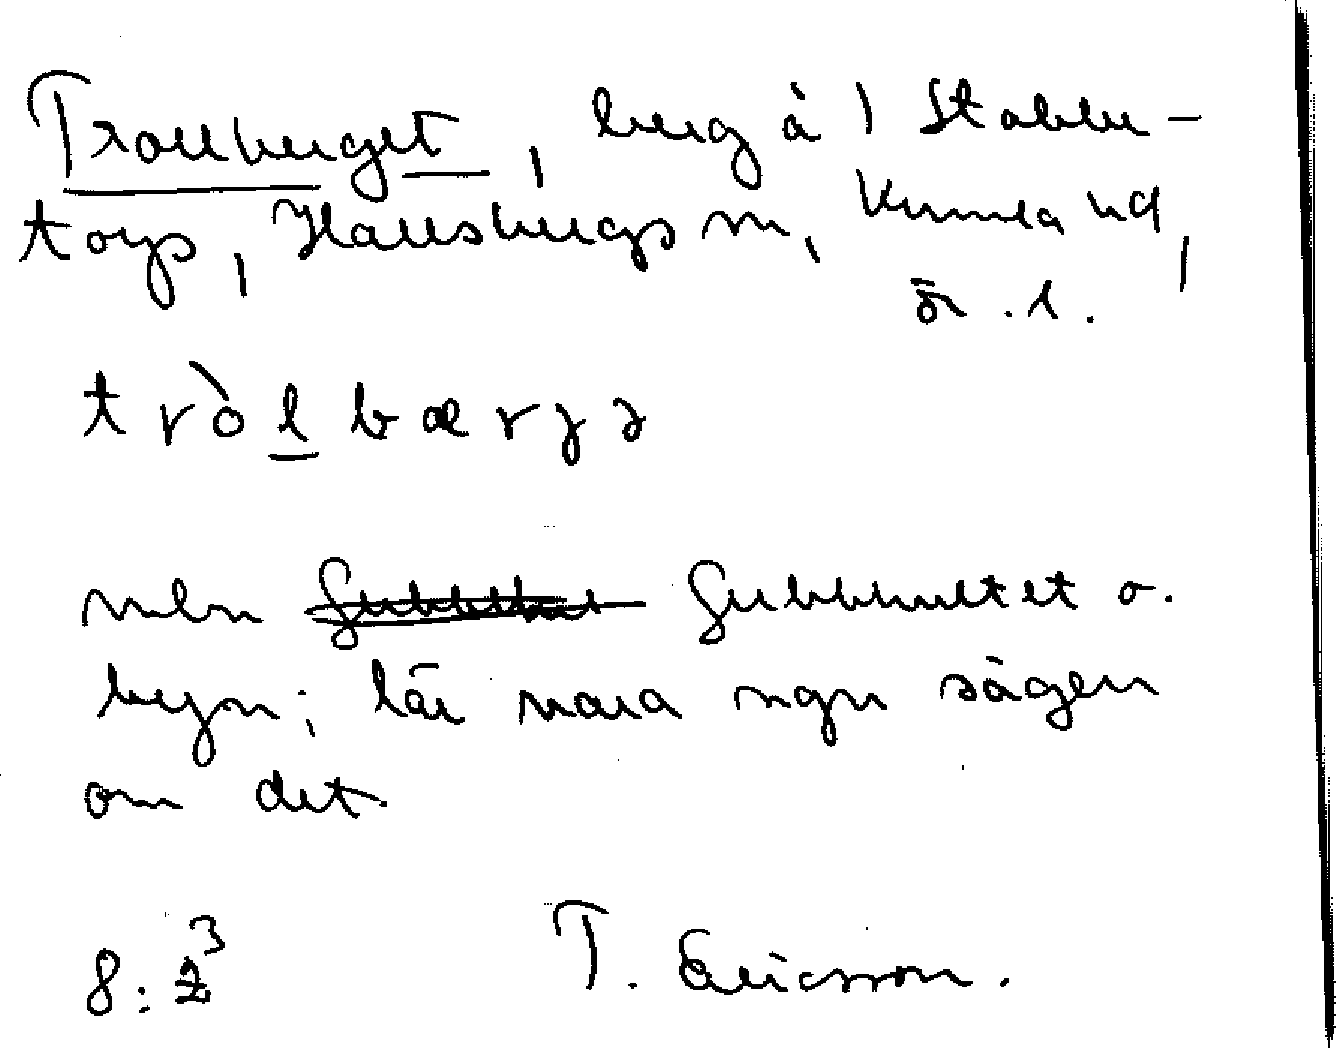 Trollberget, berg å 1 Stabbe-
torp, Hallsbergs sn, Kumla hd,
ör. l.
tròlbærjə
mln Gubbhultet o.
byn; lär vara ngn sägen
om det
8:3 T. Ericsson.